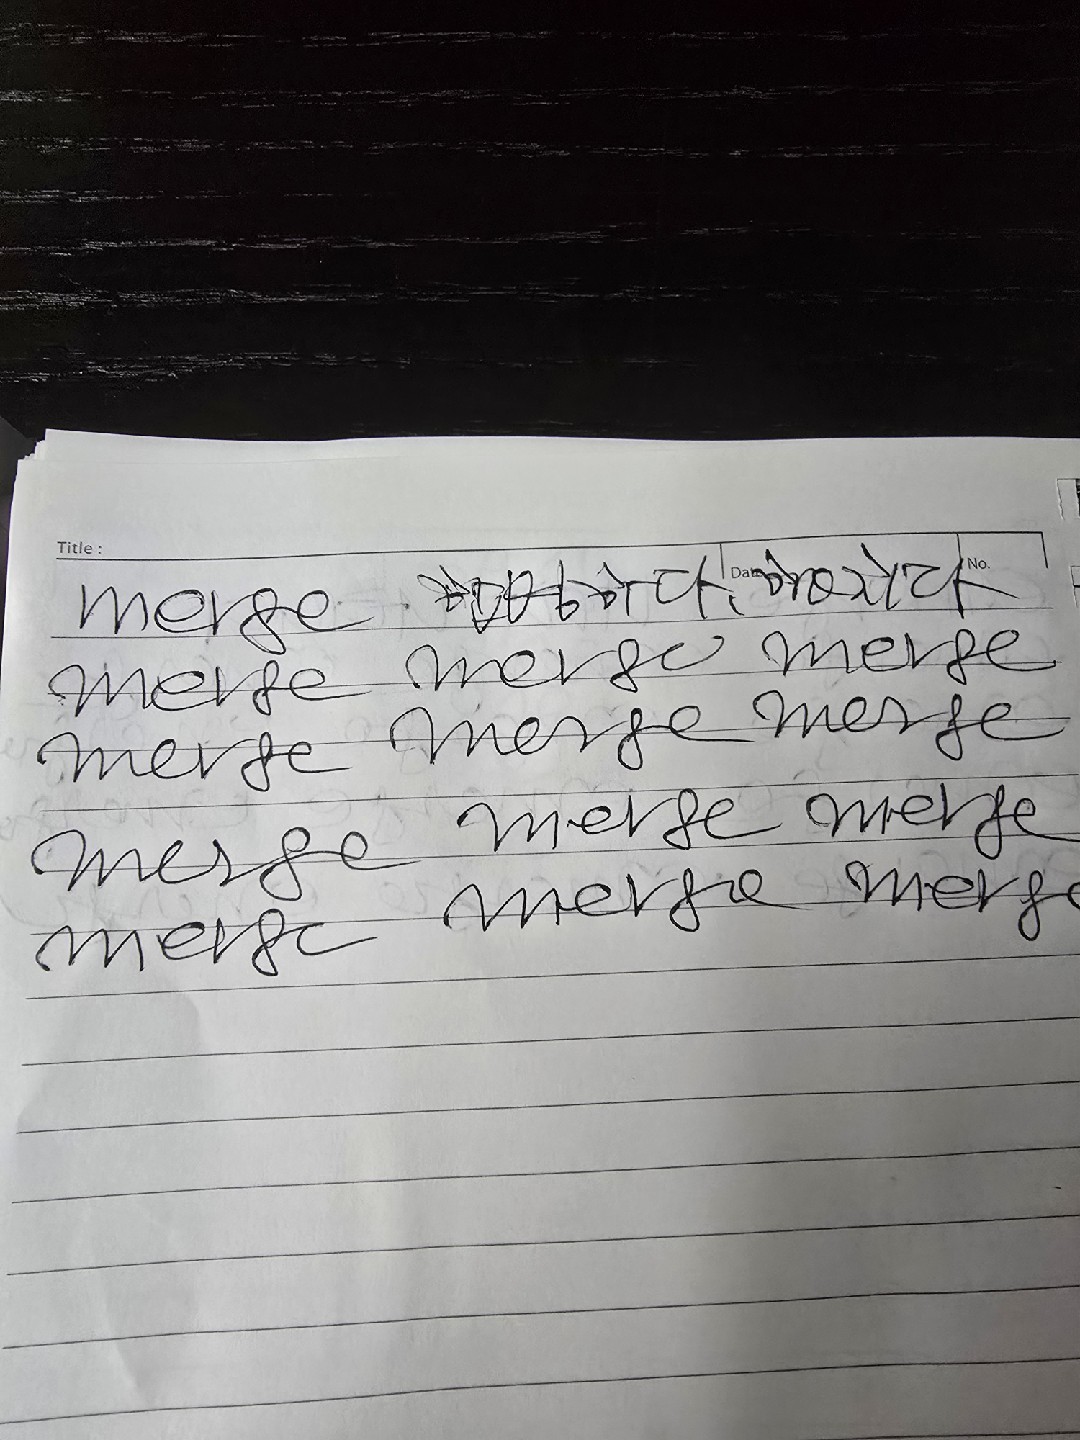 Title :
Date No.
merge 합병하다, 합쳐지다
merge merge merge
merge merge merge
merge merge merge
merge merge merge